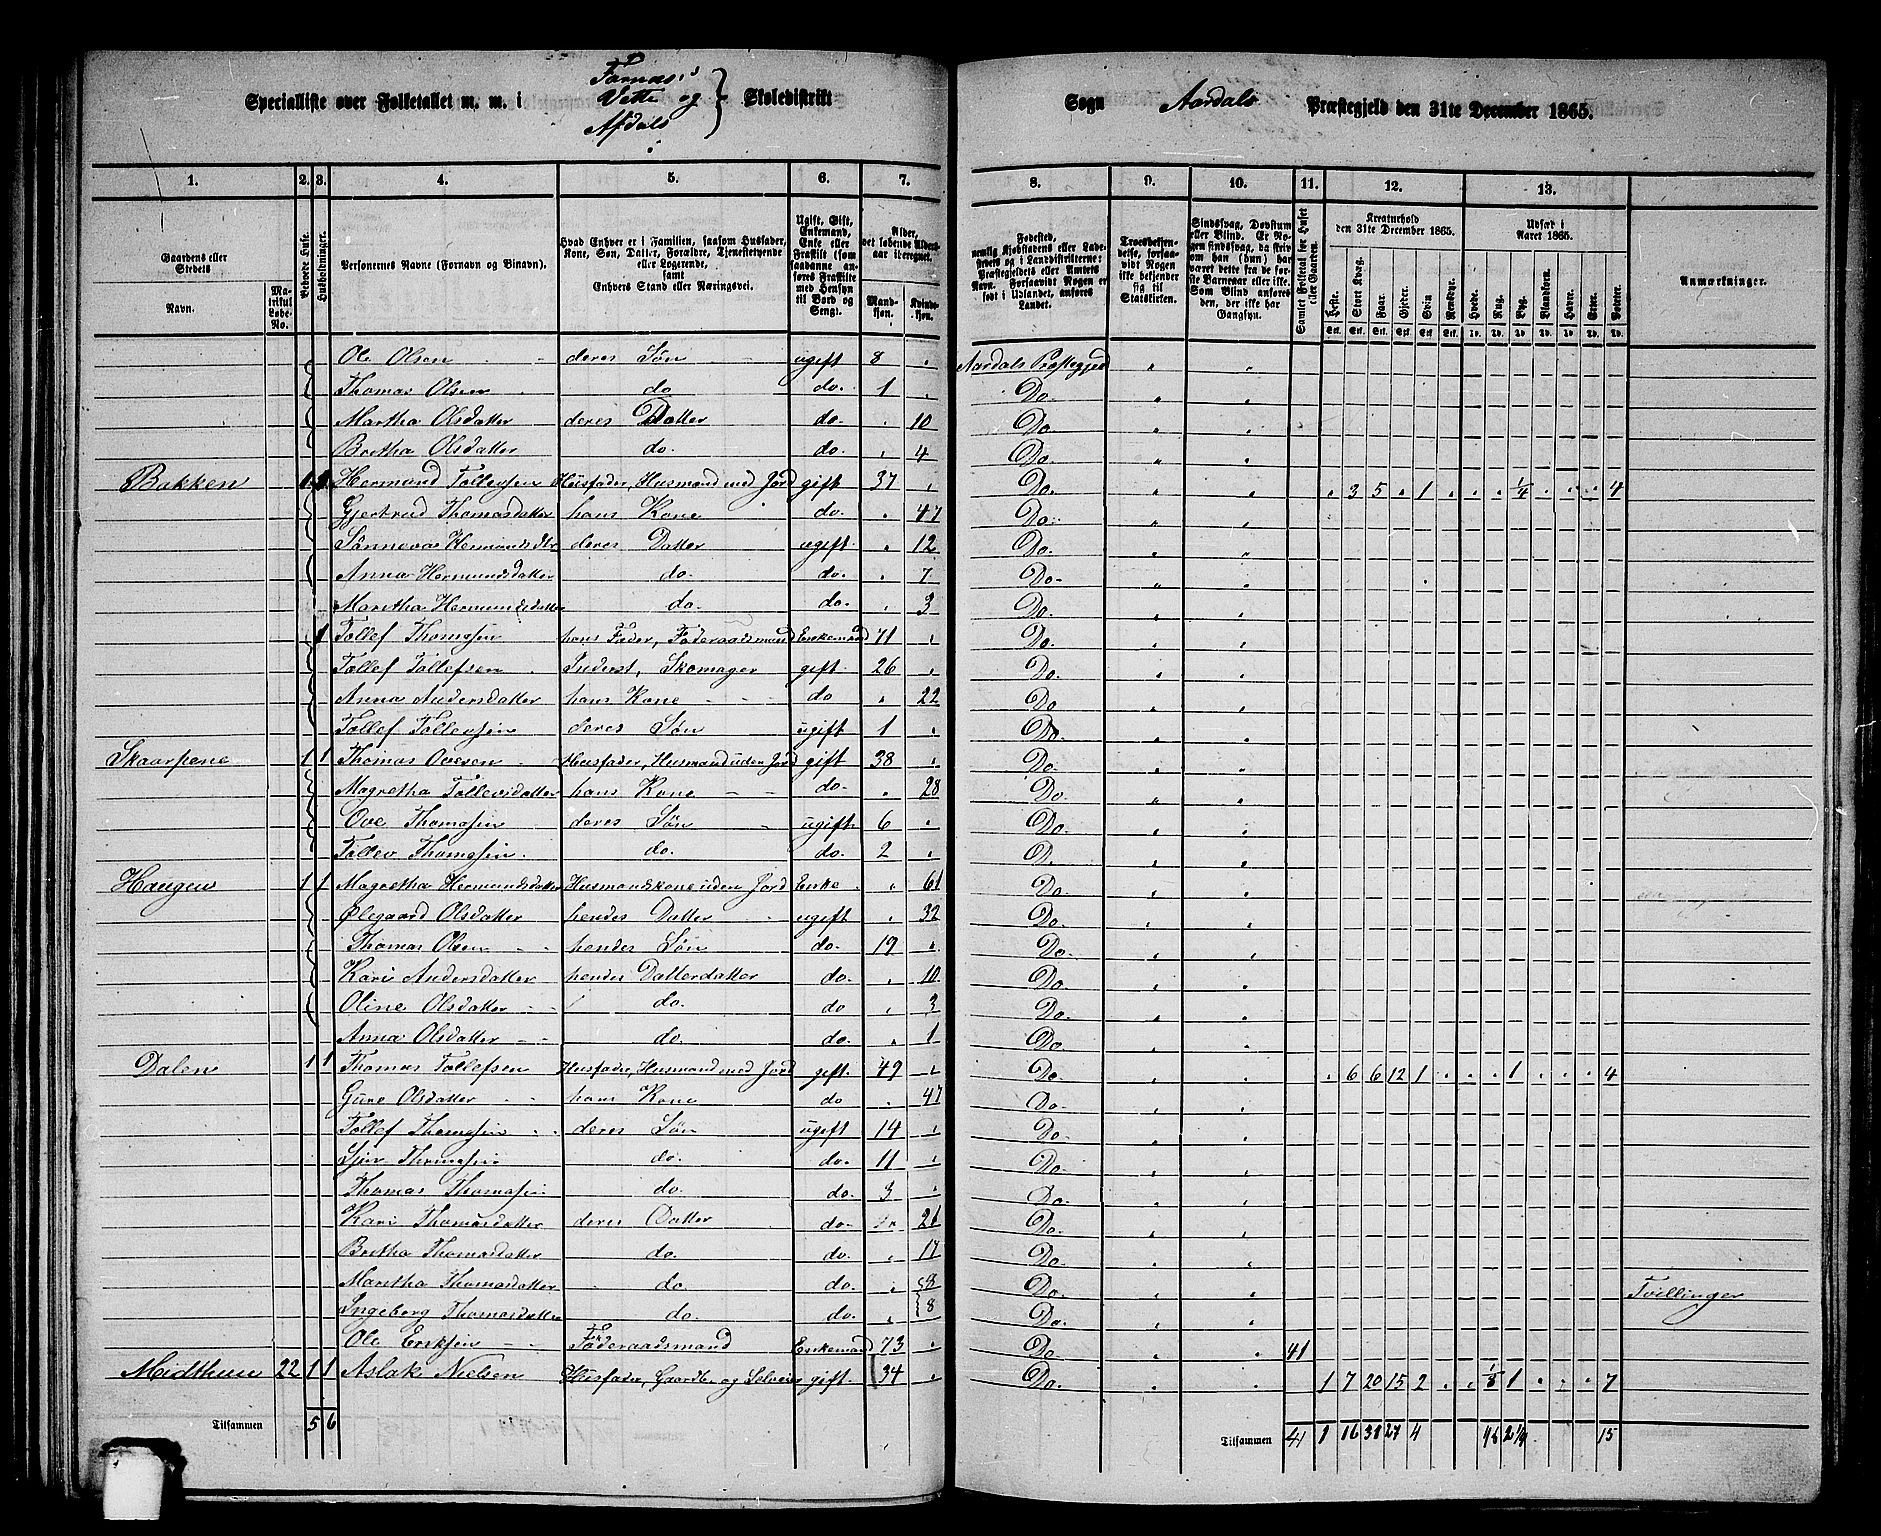 Specialliste over Folketallet m. m. i Farnæs, Vetti og Afdals Skoledistrikt
Sogn Aardals Præstegjeld den 31te December 1865.
1. 2. 3. 4. 5. 6. 7. 8. 9. 10. 11. 12. 13.
Gaardens eller Stedets Navn. Matrikul Løbe-No. Beboede Huse. Husholdninger. Personernes Navne (Fornavn og Binavn).
Hvad Enhver er i Familien, saasom Husfader, Kone, Søn, Datter, Forældre, Tjenestetyende eller Logerende, samt Enhvers Stand eller Næringsvei.
Ugift, Gift, Enkemand, Enke eller Fraskilt (som saadanne anføres Fraskilte med Hensyn til Bord og Seng).
Alder, det løbende Alders-aar iberegnet. Mandkjøn. Kvindekjøn.
Troesbekjendelse, forsaavidt Nogen ikke bekjender sig til Statskirken.
Samlet Folketal for Huset eller Gaarden.
Kreaturhold den 31te December 1865.
Udsæd i Aaret 1865.
Anmærkninger.
Ole Olsen deres Søn ugift 8 „ Aardals Præstegjeld „ „
Thomas Olsen do do. 1 „ Do. „ „
Martha Olsdatter deres Datter do. „ 10 Do. „ „
Bretha Olsdatter do. do. „ 4 Do. „ „
Bakken 1 1 Hermund Tollevsen Husfader, Husmand med Jord gift 37 „ Do. „ „ „ 3 5 „ 1 „ „ „ 1/4 „ „ „ 4
Gjertrud Thomasdatter hans Kone do. „ 47 Do. „ „
Sønneva Hermundsdtr deres Datter ugift „ 12 Do. „ „
Anna Hermundsdatter do. do. „ 7 Do. „ „
Maretha Hermundsdatter do. do. „ 3 Do. „ „
1 Tollef Thomassen hans Fader, Føderaadsmand Enkemand 71 „ Do. „ „
Tollef Tollefsen Inderst, Skomager gift 26 „ Do. „ „
Anna Andersdatter hans Kone do „ 22 Do „ „
Tollef Tollevsen deres Søn ugift 1 „ Do. „ „
Skaarpene 1 1 Thomas Ovesen Husfader, Husmand uden Jord gift 38 „ Do. „ „
Magretha Tollevsdatter hans Kone do. „ 28 Do. „ „
Ove Thomassen deres Søn ugift 6 „ Do. „ „
Tollev Thomassen do. do. 2 „ D. „ „
Haugen 1 1 Magretha Hermundsdatter Husmandskone uden Jord Enke „ 61 Do „ „
Ølegaard Olsdatter hendes Datter ugift „ 32 Do. „ „
Thomas Olsen hendes Søn do. 19 „ Do. „ „
Kari Andersdatter hendes Datterdatter do. „ 10 Do. „ „
Oline Olsdatter do. do „ 3 Do. „ „
Anna Olsdatter do. do. „ 1 Do. „ „
Dalen 1 1 Thomas Tollefsen Husfader, Husmand med Jord gift 49 „ Do. „ „ „ 6 6 12 1 „ „ „ 1 „ „ „ 4
Gure Olsdatter hans Kone do „ 47 Do. „ „
Tollef Thomassen deres Søn ugift 14 „ Do. „ „
Sjur Thomassen do. do. 11 „ Do. „ „
Thomas Thomassen do. do. 3 „ Do. „ „
Kari Thomasdatter deres Datter do. „ 21 Do. „ „
Bretha Thomasdatter do. do. „ 17 Do. „ „
Maretha Thomasdatter do. do. „ 8 Do. „ „ Tvillinger
Ingeborg Thomasdatter do. do. „ 8 Do. „ „
Ole Eriksen Føderaadsmand Enkemand 73 „ Do „ „ 41
Midthun 22 1 1 Aslak Nielsen Husfader, Gaardbr. og Selveier gift 34 „ Do. „ „ 1 7 20 15 2 „ „ 1/8 1 „ „ „ 7
Tilsammen 5 6
Tilsammen 41 1 16 31 27 4 1/8 2 1/4 15